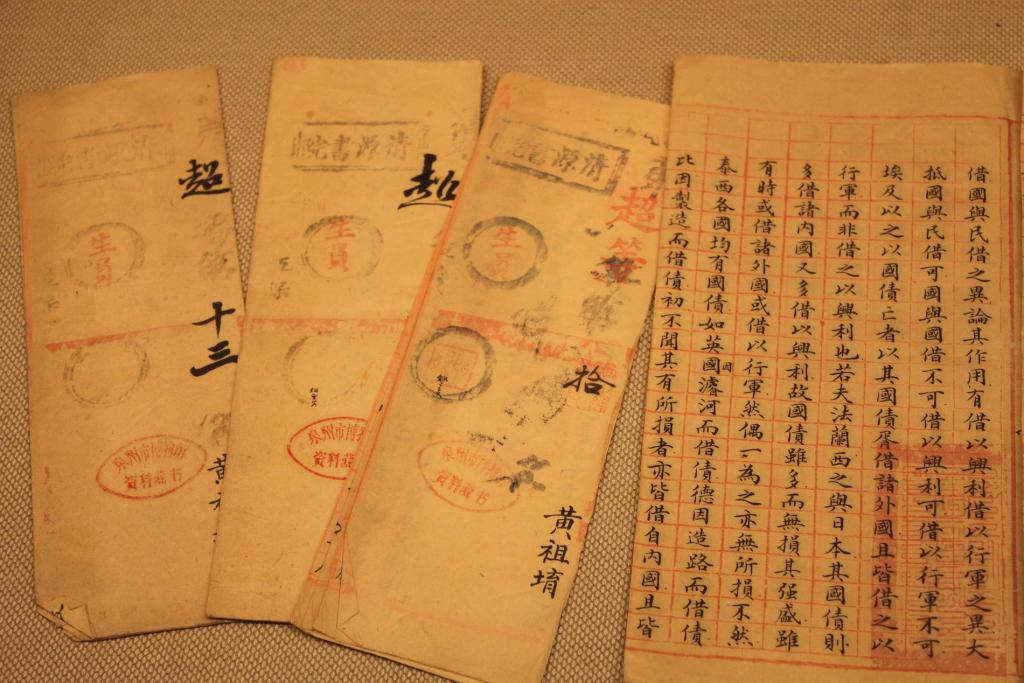 借國與民借之異論其作用有借以興利借以行軍之異大
抵國與民借可國與國借不可借以興利可借以行軍不可
埃及以之以國債亡者以其國債胥借諸外國且皆借之以
行軍而非借之以興利也若夫法蘭西之與日本其國債則
多借諸內國又多借以興利故國債雖多而無損其强盛雖
有時或借諸外國或借以行軍然偶一為之亦無所損不然
泰西各國均有國債如英國因濬河而借債德因造路而借債
比因製造而借債初不聞其有所損者亦皆借自內國且皆
清源書院
超等
生員
拾
名
黃祖堉
泉州市博物館
資料藏书
清源書院
超
生員
泉州市博物
資料藏
超
生員
十三
黃
泉州市博物館
資料藏书